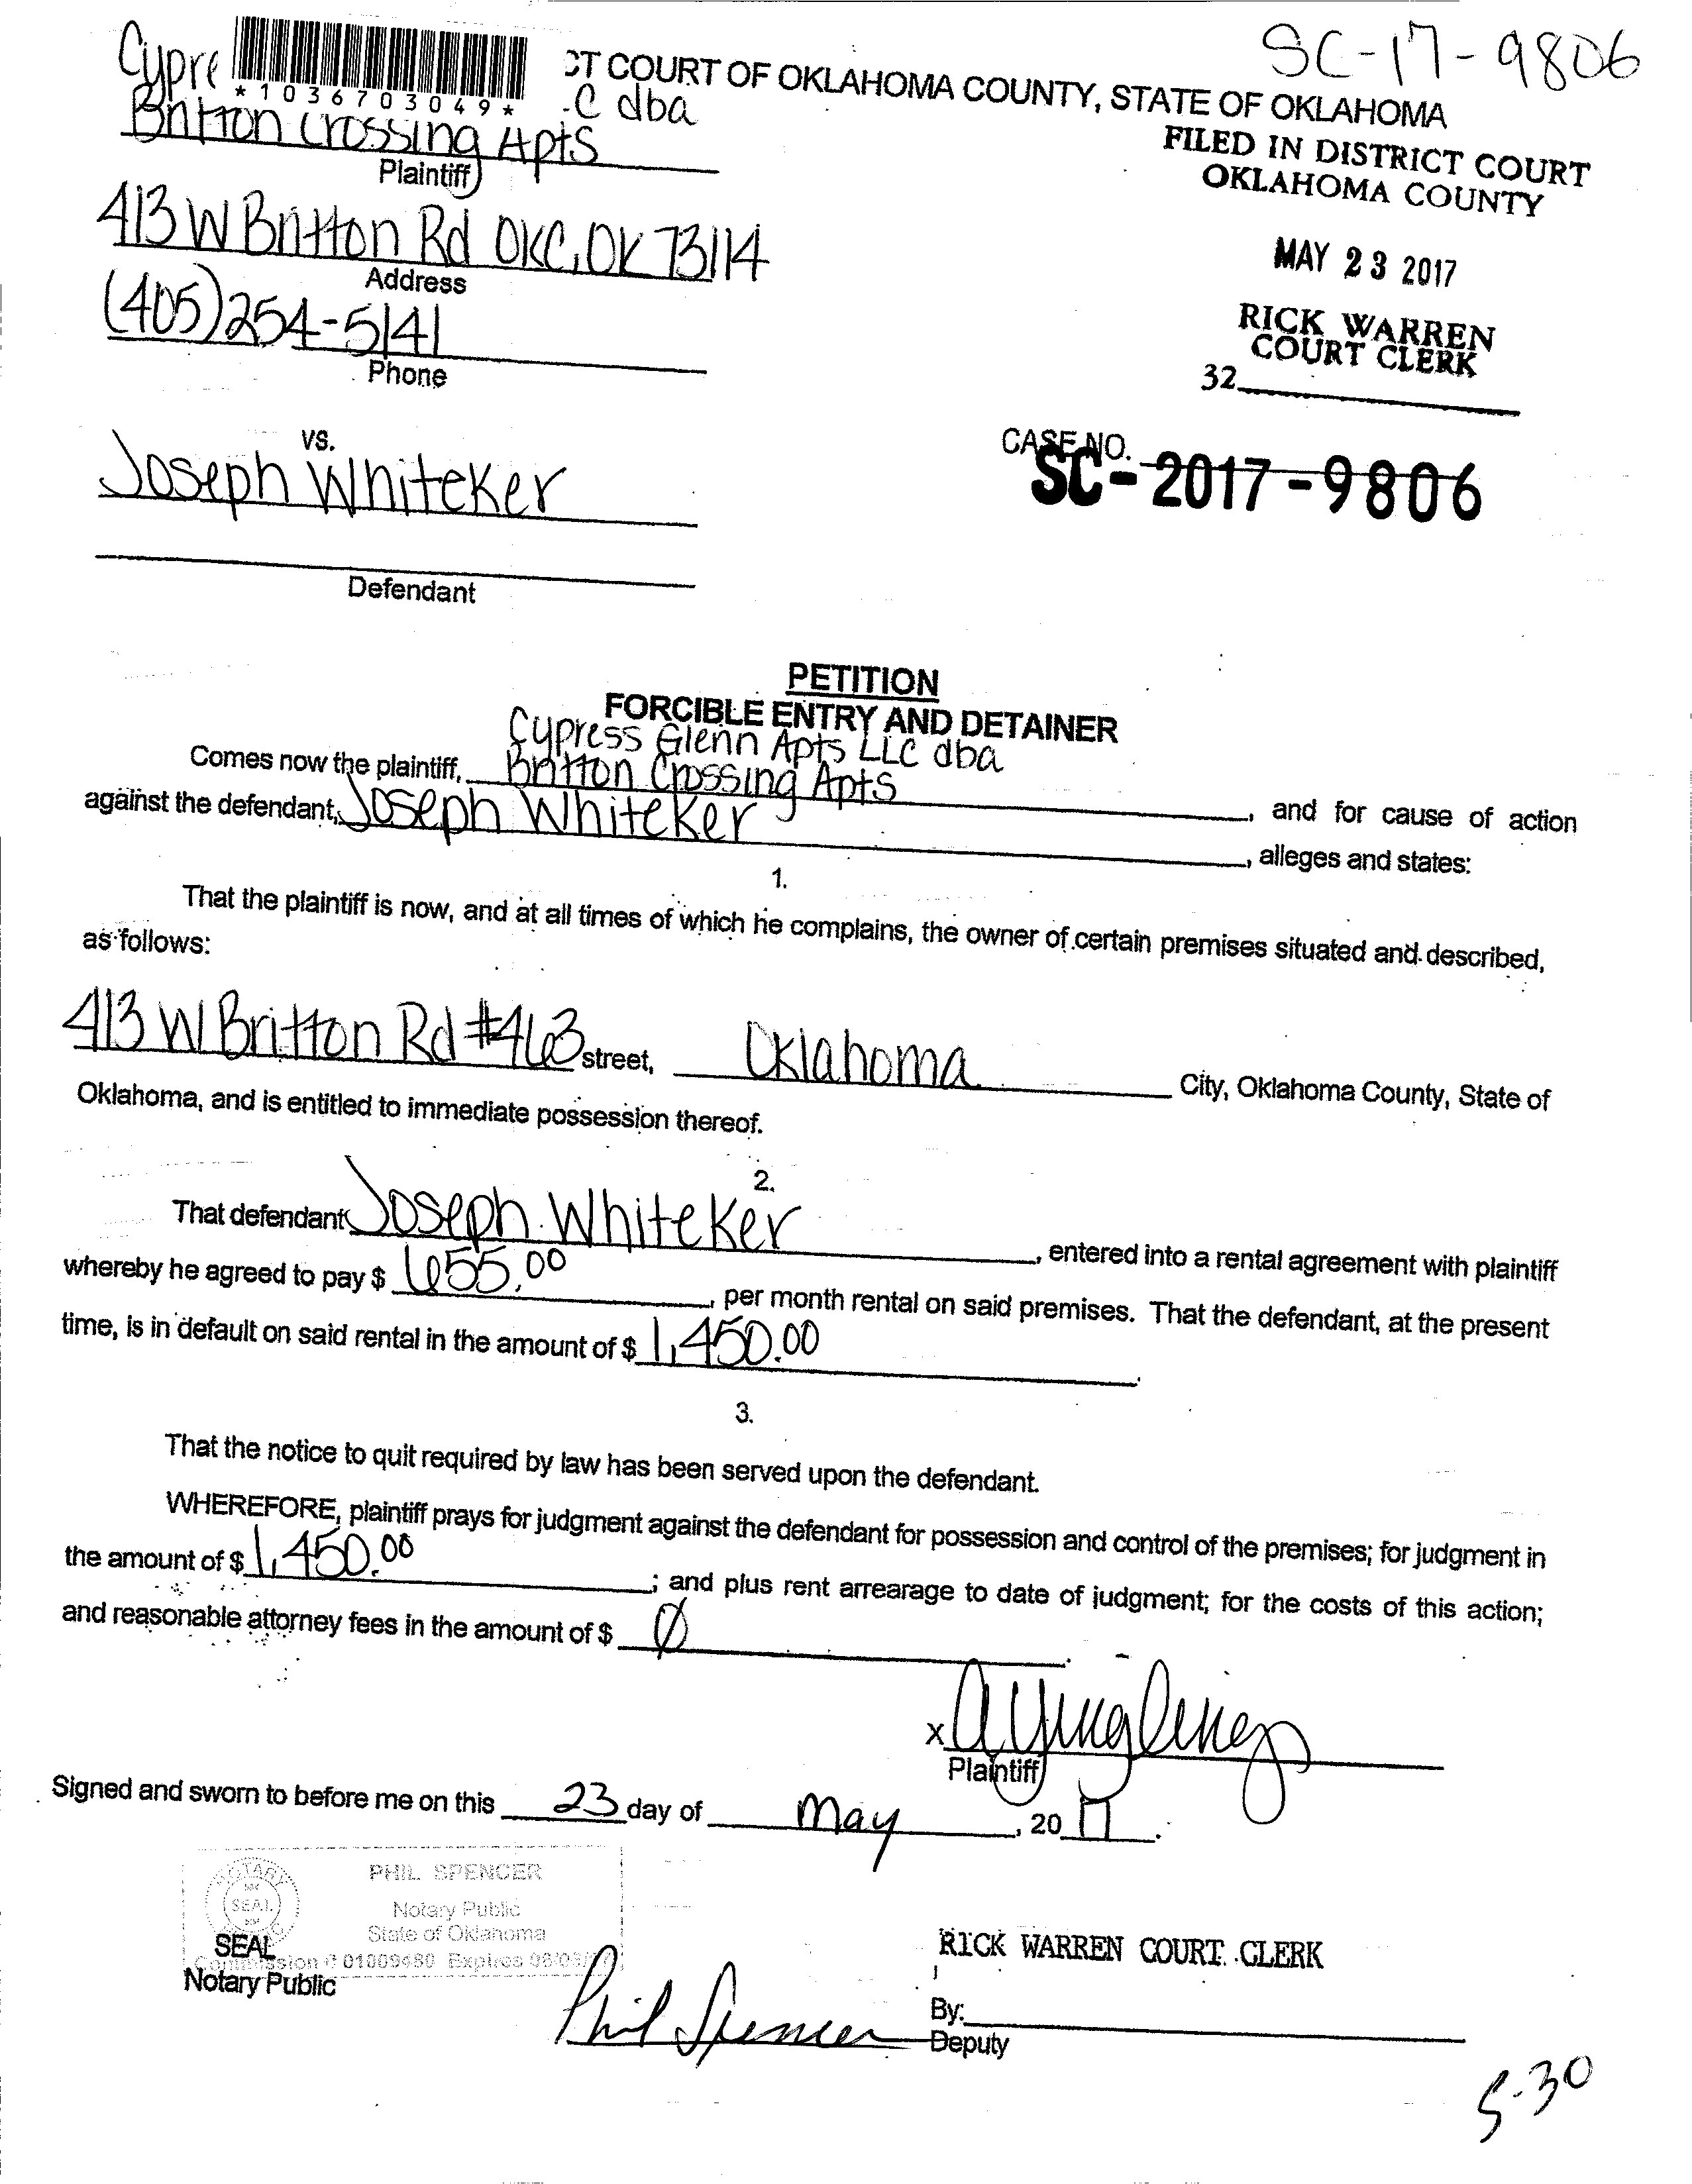 SC-17-9806
Cypre
*1036703049*
CT COURT OF OKLAHOMA COUNTY, STATE OF OKLAHOMA
C dba
Britton Crossing Apts
Plaintiff
FILED IN DISTRICT COURT
OKLAHOMA COUNTY
413 W Britton Rd OKC, OK 73114
Address
MAY 23 2017
(405)254-5141
Phone
RICK WARREN
COURT CLERK
32
vs.
Joseph Whiteker
Defendant
CASE NO.
SC-2017-9806
PETITION
FORCIBLE ENTRY AND DETAINER
Cypress Glenn Apts LLC dba
Comes now the plaintiff, Britton Crossing Apts, and for cause of action
against the defendant, Joseph Whiteker, alleges and states:
1.
That the plaintiff is now, and at all times of which he complains, the owner of certain premises situated and described,
as follows:
413 W Britton Rd #463 street, Oklahoma City, Oklahoma County, State of
Oklahoma, and is entitled to immediate possession thereof.
2.
That defendant Joseph Whiteker, entered into a rental agreement with plaintiff
whereby he agreed to pay $ 655.00, per month rental on said premises. That the defendant, at the present
time, is in default on said rental in the amount of $ 1,450.00.
3.
That the notice to quit required by law has been served upon the defendant.
WHEREFORE, plaintiff prays for judgment against the defendant for possession and control of the premises; for judgment in
the amount of $ 1,450.00; and plus rent arrearage to date of judgment; for the costs of this action;
and reasonable attorney fees in the amount of $ Ø.
x A Yingling
Plaintiff
Signed and sworn to before me on this 23 day of May, 2017.
NOTARY
SEAL
PHIL SPENCER
Notary Public
State of Oklahoma
Commission # 01009480 Expires
SEAL
Notary Public
Phil Spencer
RICK WARREN COURT CLERK
By:
Deputy
5-30